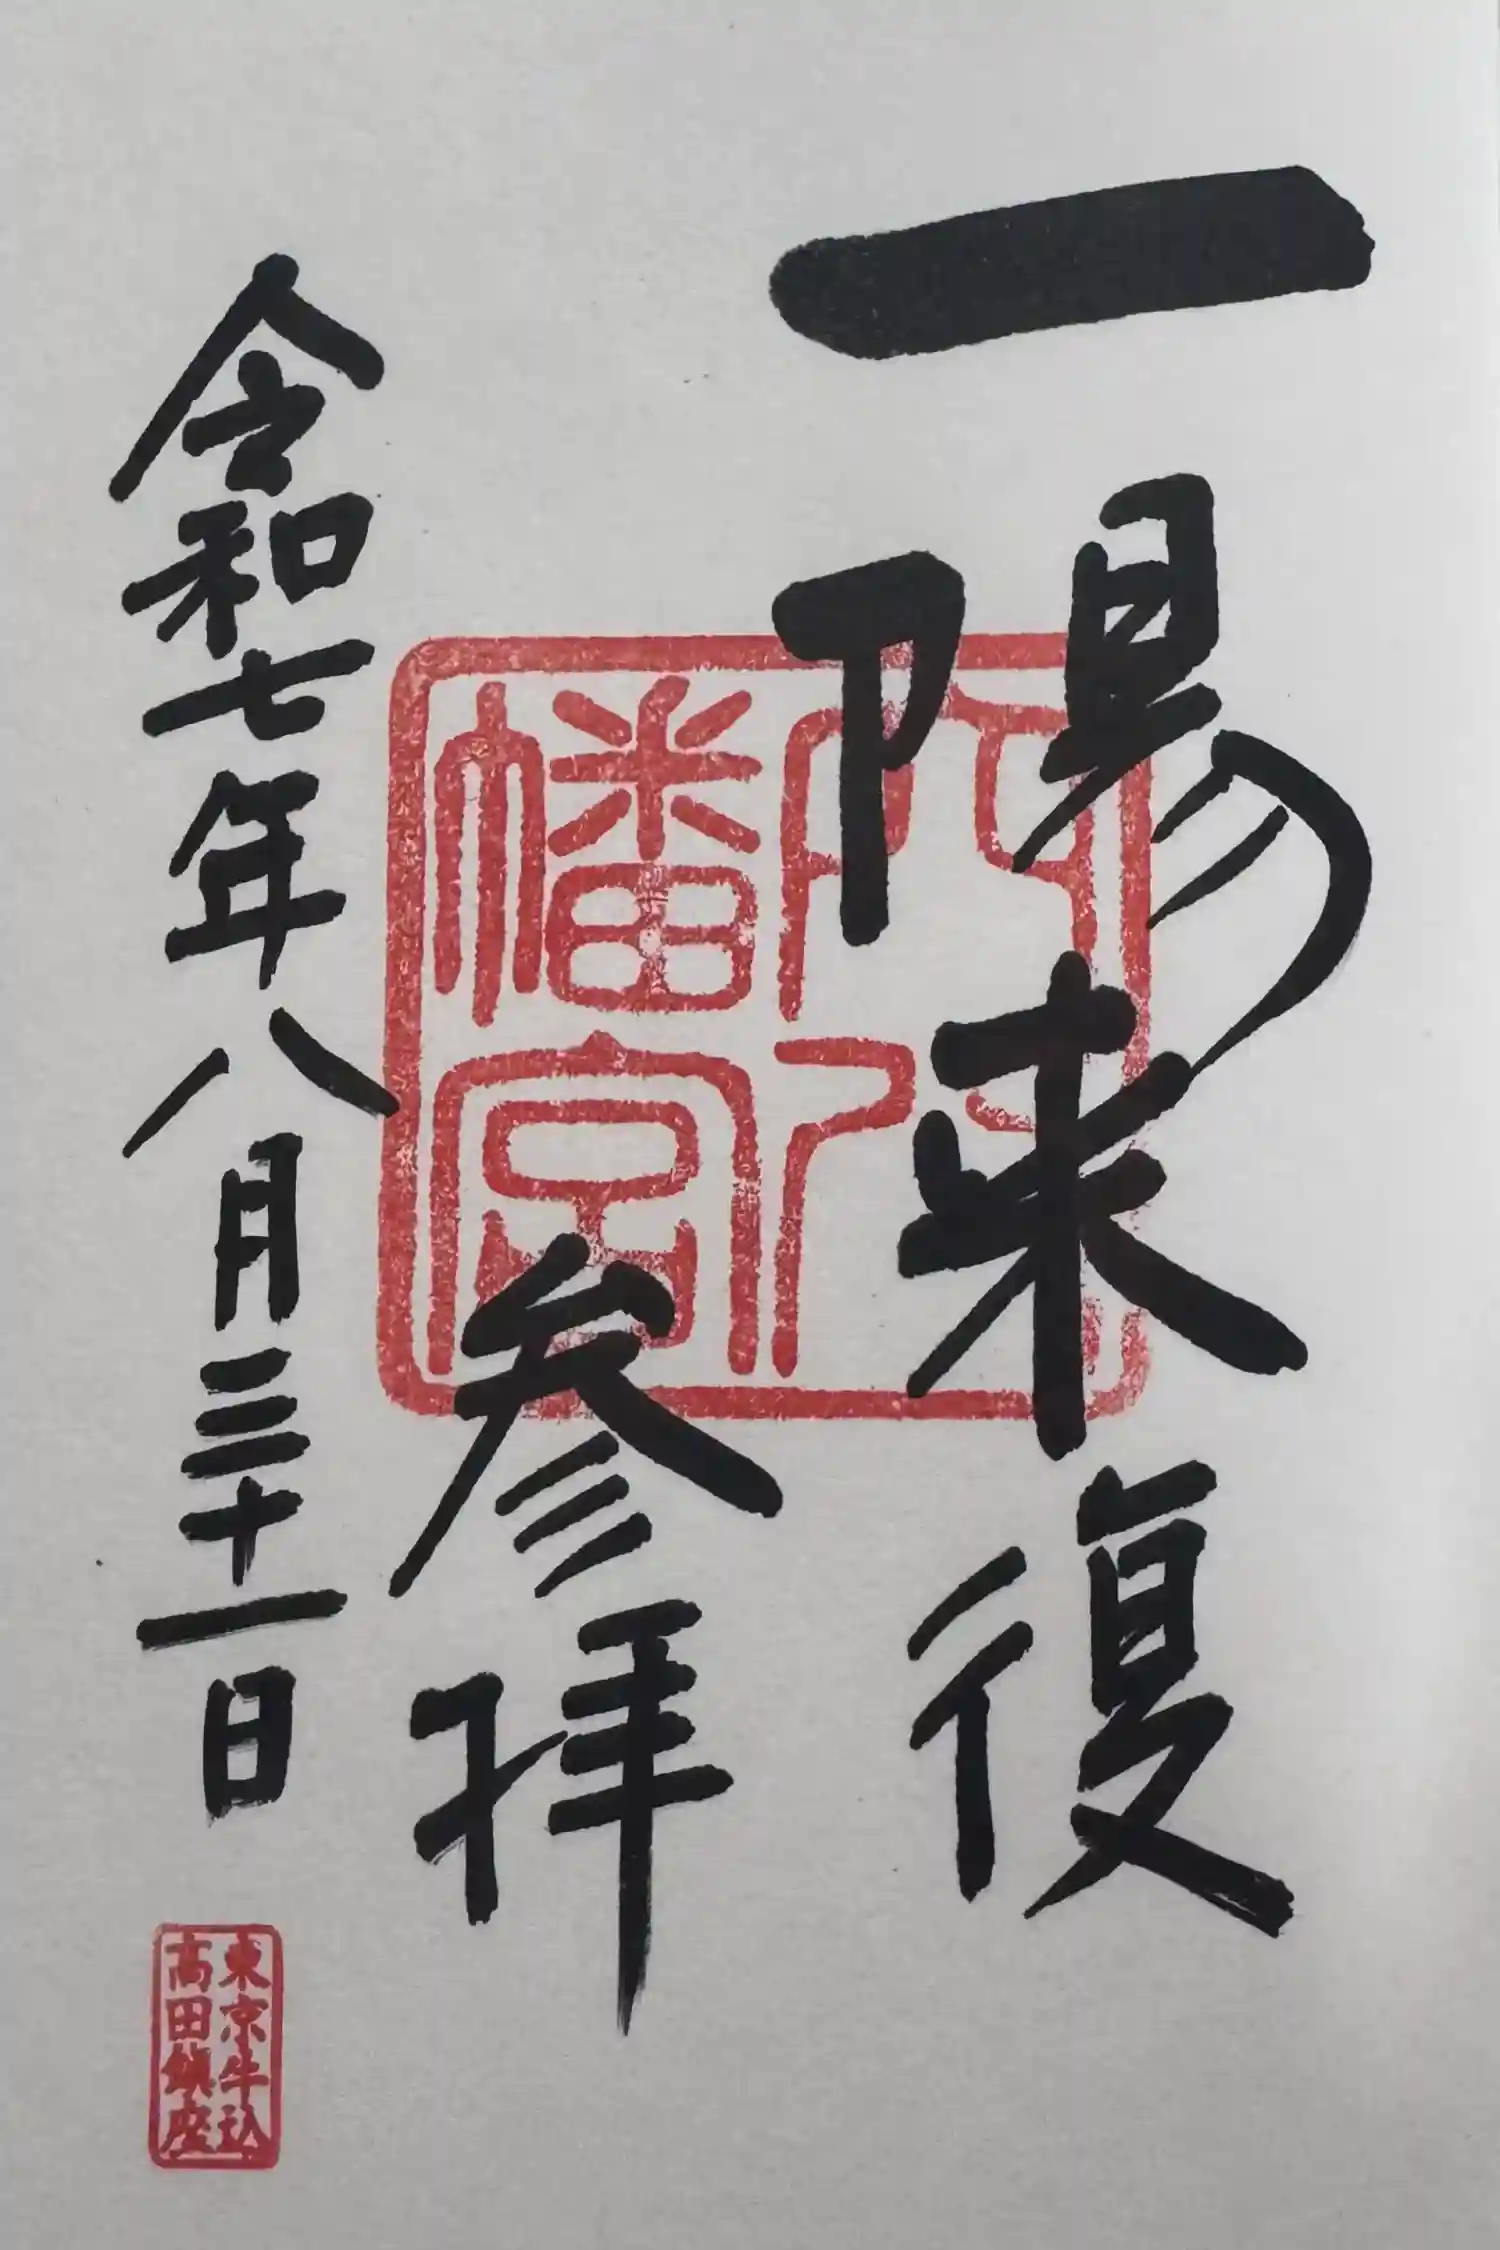 一陽来復
参拝
令和七年八月三十一日
八幡宮
東京牛込
高田鎮座